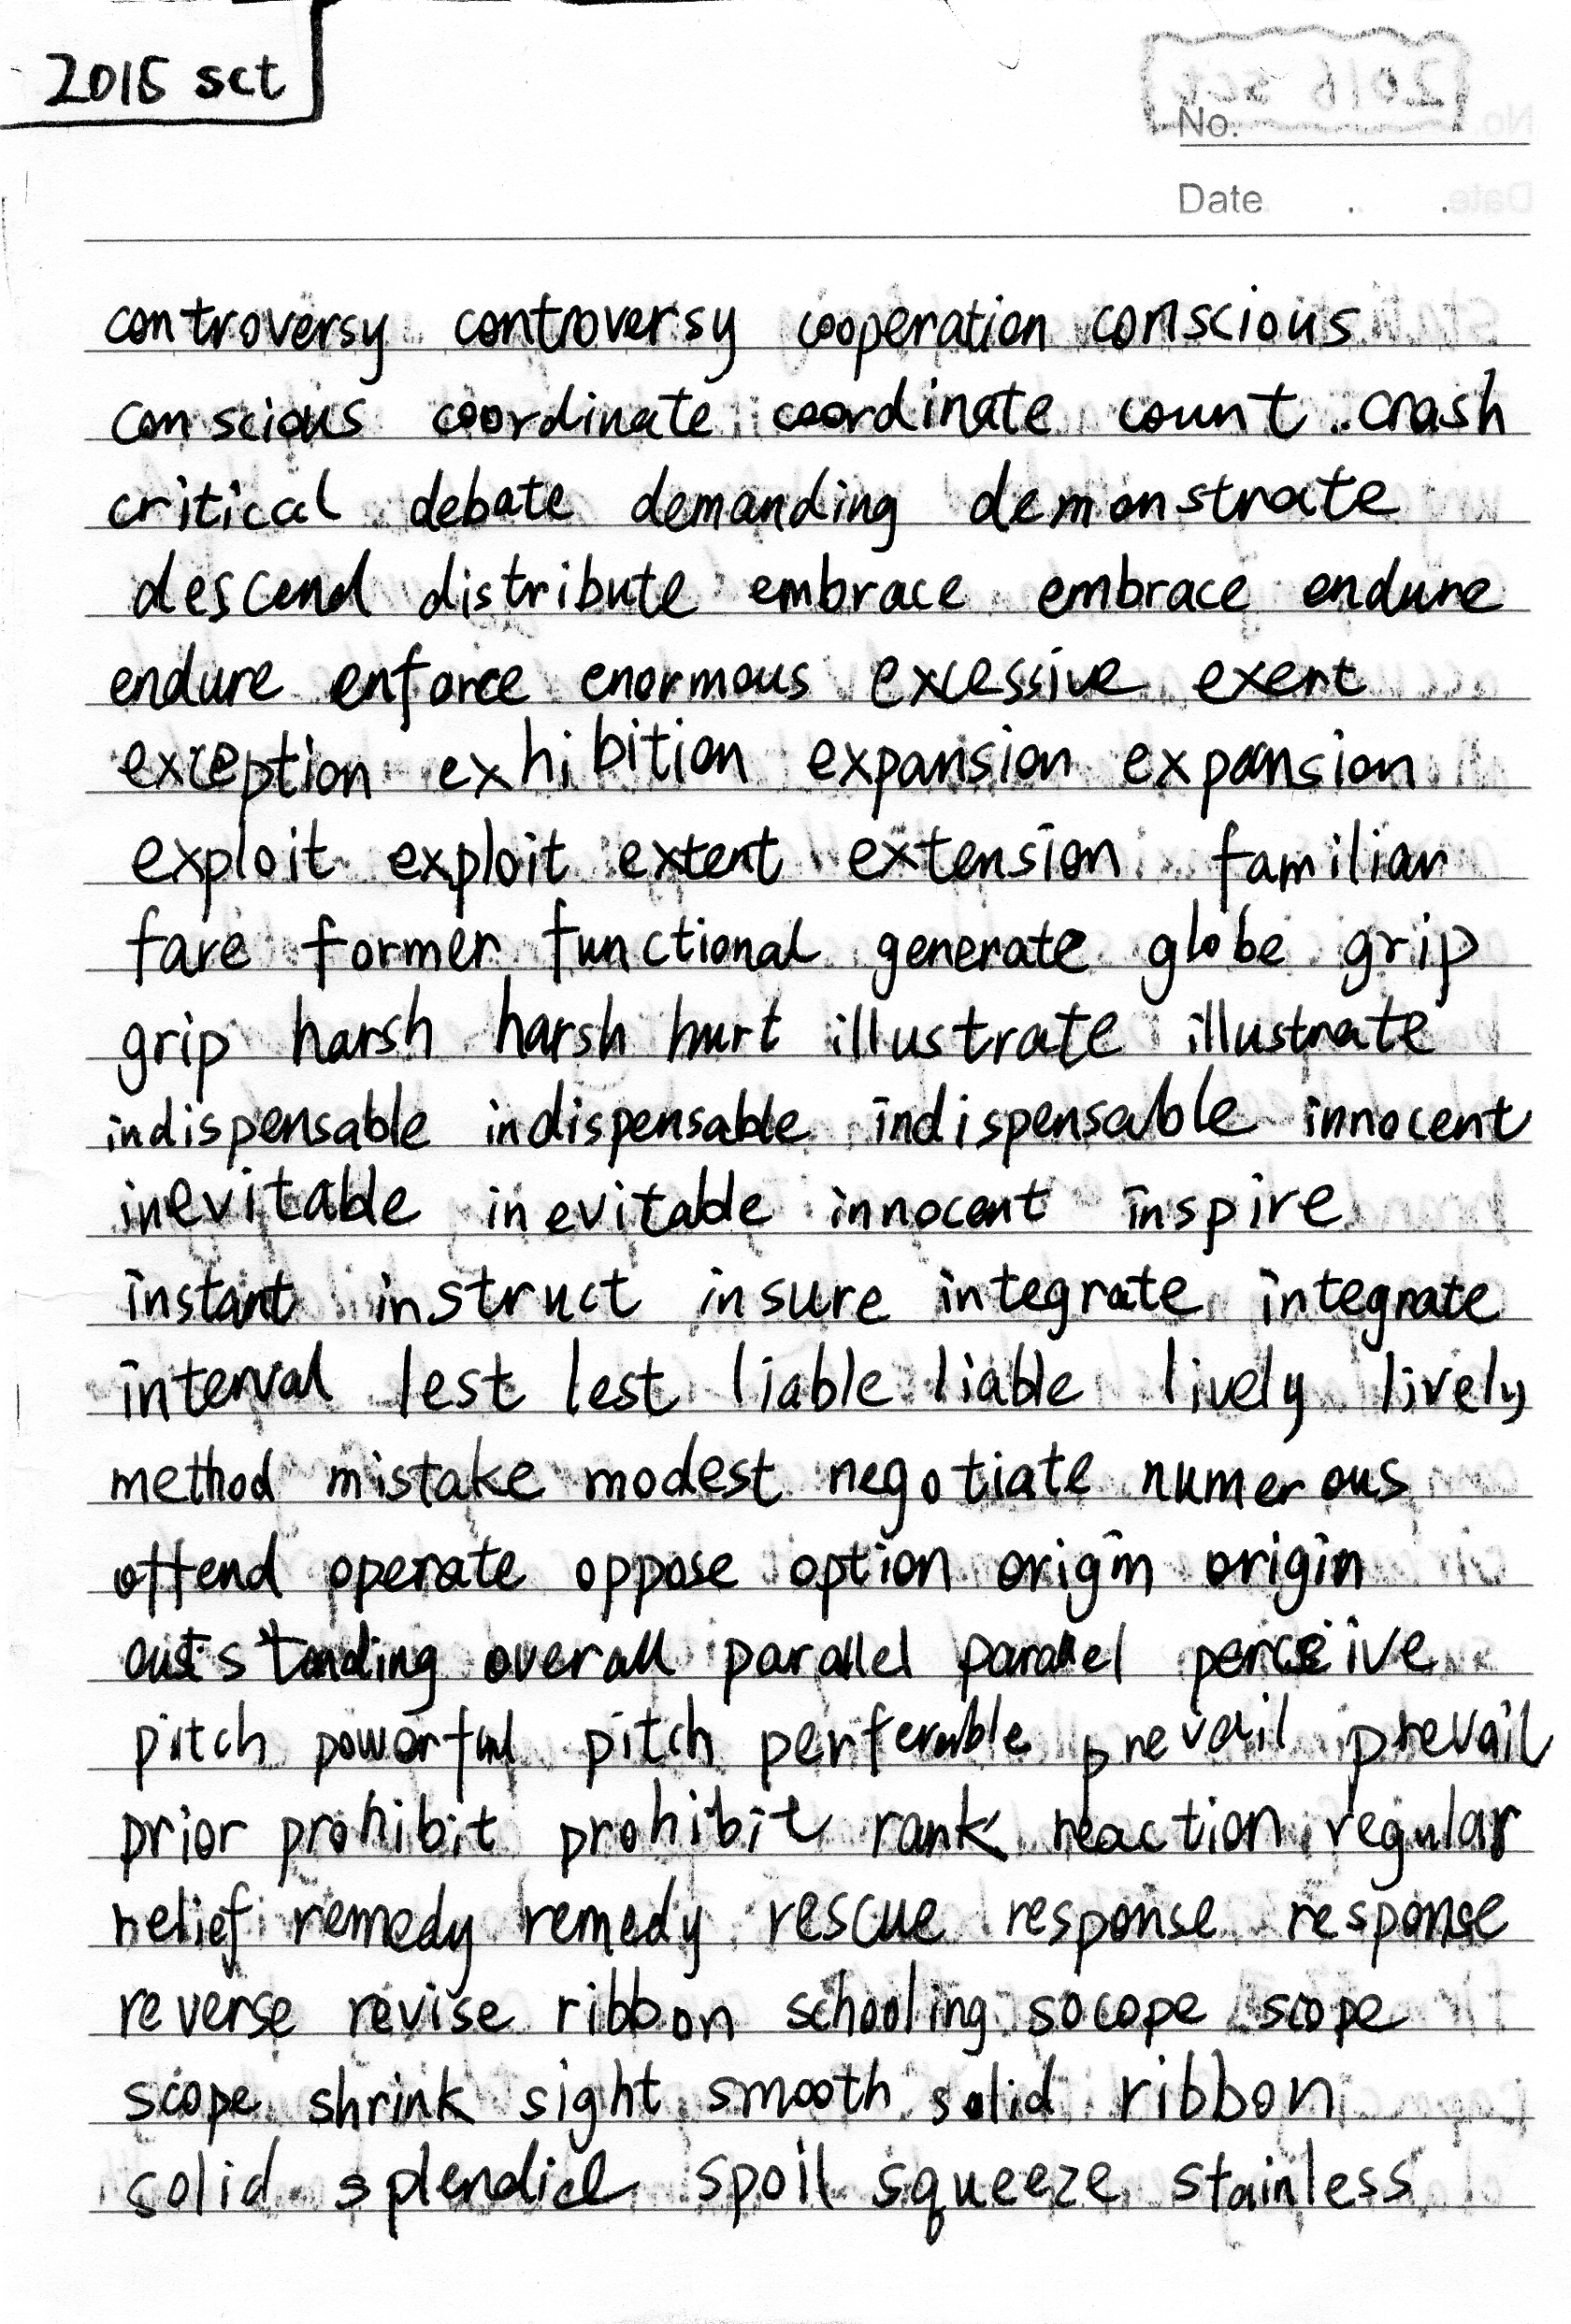 2016 sct
No.
Date . .
controversy controversy cooperation conscious
conscious coordinate coordinate count crash
critical debate demanding demonstrate
descend distribute embrace embrace endure
endure enforce enormous excessive exert
exception exhibition expansion expansion
exploit exploit extent extension familiar
fare former functional generate globe grip
grip harsh harsh hurt illustrate illustrate
indispensable indispensable indispensable innocent
inevitable inevitable innocent inspire
instant instruct insure integrate integrate
interval lest lest liable liable lively lively
method mistake modest negotiate numerous
offend operate oppose option origin origin
outstanding overall parallel parallel perceive
pitch powerful pitch perferable prevail prevail
prior prohibit prohibit rank reaction regular
relief remedy remedy rescue response response
reverse revise ribbon schooling socope scope
scope shrink sight smooth solid ribbon
solid splendid spoil squeeze stainless